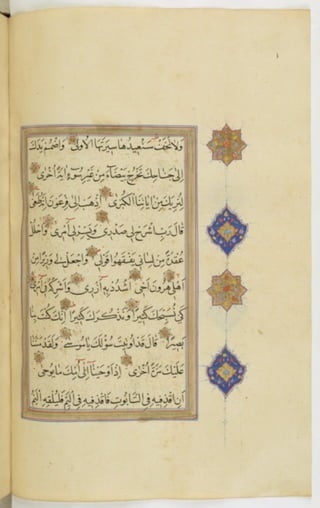 ولا تخف سنعيدها سيرتها الاولى واضمم يدك
الى جناحك تخرج بيضاء من غير سوء اية اخرى
لنريك من اياتنا الكبرى اذهب الى فرعون انه طغى
قال رب اشرح لي صدري ويسر لي امري واحلل
عقدة من لساني يفقهوا قولي واجعل لي وزيرا من
اهلي هرون اخي اشدد به ازري واشركه في امري
كي نسبحك كثيرا ونذكرك كثيرا انك كنت بنا
بصيرا قال قد اوتيت سؤلك يا موسى ولقد مننا
عليك مرة اخرى اذ اوحينا الى امك ما يوحى
ان اقذفيه في التابوت فاقذفيه في اليم فليلقه اليم